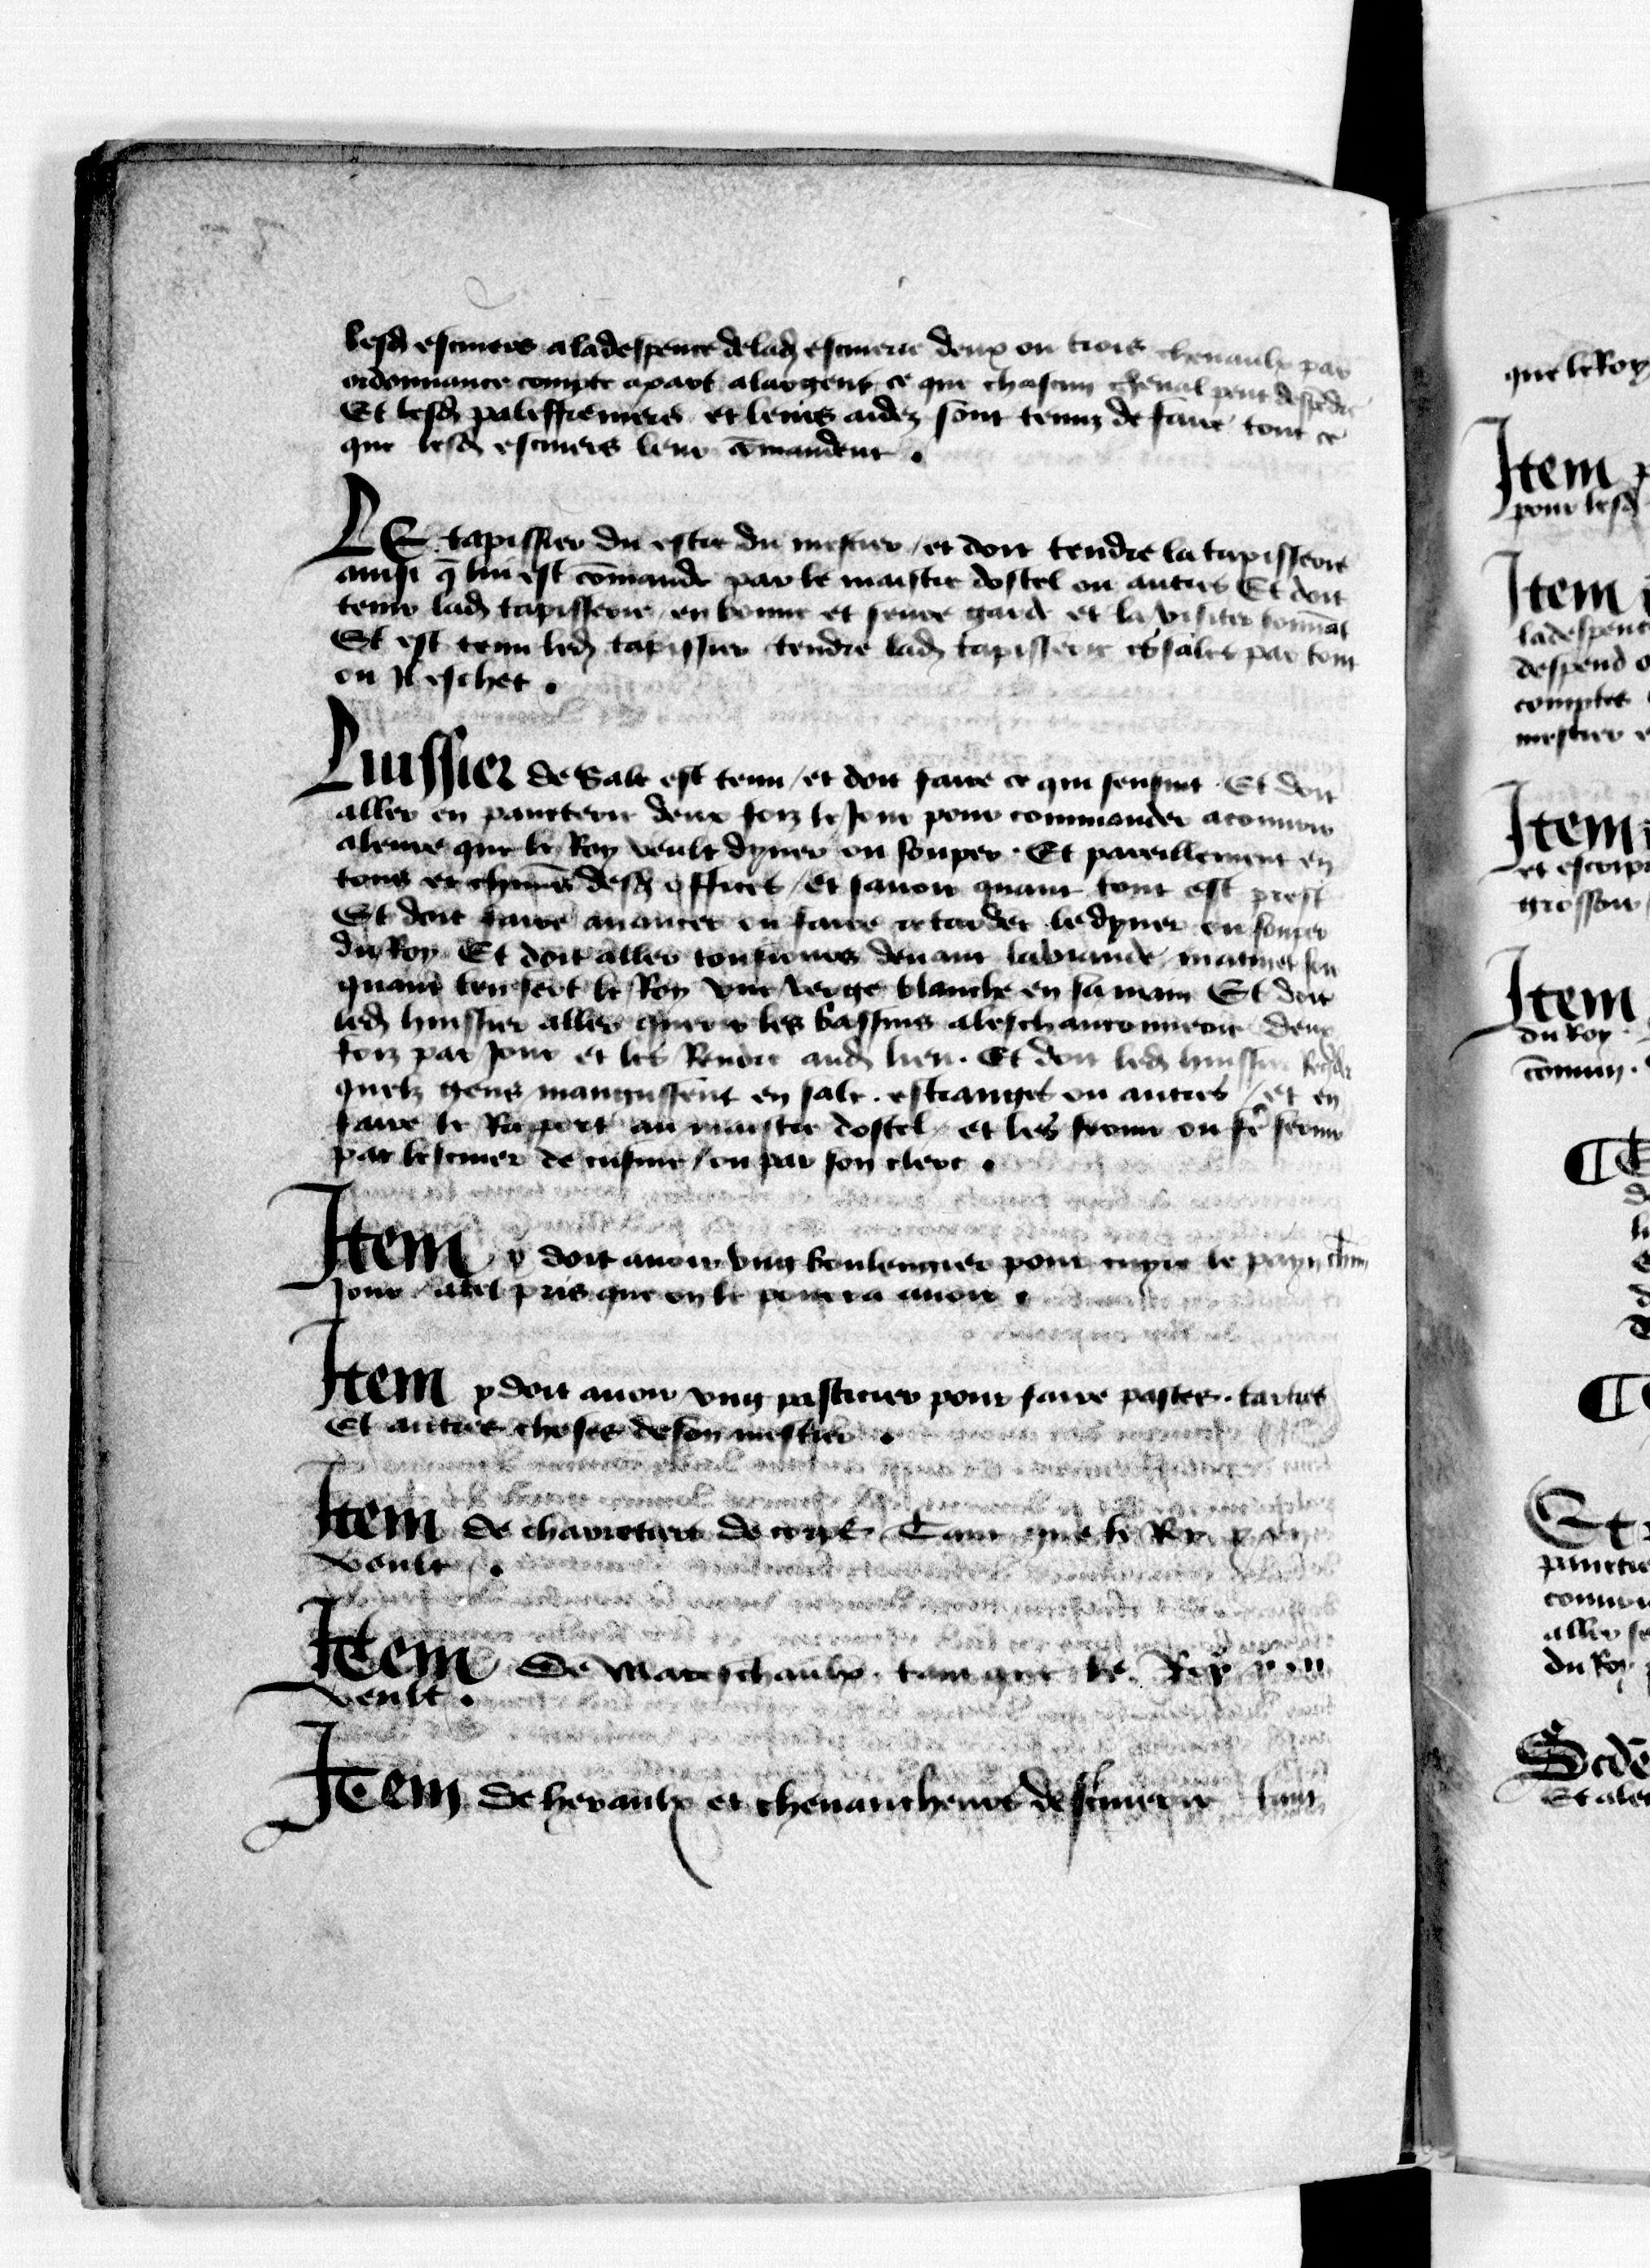 lesd escuiers a la despence de lad escuierie deux ou trois chevaulx par
ordonnance compte apart alargent ce que chascun cheval peut despēdre
Et lesd paleffreniers et leurs aidez sont tenuz de faire tout ce
que lesd escuiers leur cōmandent .
LE tapissier du estre du mestier / et doit tendre la tapisserie
ainsi q̄ luy est cōmande par le maistre dostel ou autres Et doit
tenir lad tapisserie / en bonne et seure garde et la visiter souuāt
Et est tenu led tapissier tendre lad tapisserie es sales par tout
ou Il eschet .
Luissier de Sale est tenu / et doit faire ce qui sensuit . Et doit
aller en paneterie deux foiz le Jour pour commander a couurir
aleure que le Roy veult dyner ou souper . Et pareillement en
tous et chūns desd offices / et sauoir quant tout est prest
Et doit faire auancer ou faire retarder le dyner ou souper
du Roy Et doit aller tousiours deuant la viande / matinet soir
quant len sert le Roy vne verge blanche en sa main Et doit
led huissier aller querir les bassins a leschanconnerie deux
foiz par Jour et les Rendre aud lieu . Et doit led huissier Regarder
quelz gens mangussent en sale . estranges ou autres / et en
faire le Rapport au maistre dostel / et les seruir ou fē seruir
par lescuier de cuisine / ou par son clerc .
Item y doit auoir vng boulengier pour cuyre le payn chūn
Jour / a tel pris que on le pourra auoir .
Item y doit auoir vng pasticier pour faire pastes . tartres
Et autres choses de son mestier .
Item de charretiers de corps . Tant que le Roy y en
veult .
Item De Mareschaulx . tant que le Roy y en
veult .
Item de heraulx et cheuaucheurs descuierie tant
que le Roy
Item
pour lesd
Item
la despence
despend
comptes
mestier
Item
et escrip
Item
du Roy
cōmun .
Et
paneterie
aller
du Roy